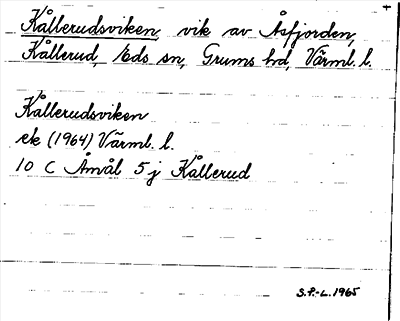 Kållerudsviken, vik av Åsfjorden,
Kållerud, Eds sn, Grums hd, Värml. l.
Kållerudsviken
ek (1964) Värml. l.
10 C Åmål 5 j Kållerud
S.F.-L. 1965